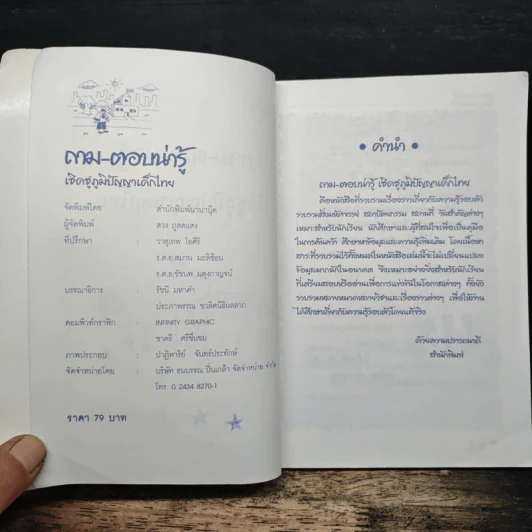 ถาม-ตอบน่ารู้
เชิดชูภูมิปัญญาเด็กไทย
จัดพิมพ์โดย : สำนักพิมพ์นานาบุ๊ค
ผู้จัดพิมพ์ : สวง
ที่ปรึกษา : วาสุเทพ โอศิริ
ร.ต.อ.สมาน
ร.ต.อ.ธัชนพ ผดุงกาญจน์
บรรณาธิการ : รัชนี มหาคำ
ประภาพรรณ
คอมพิวท์กราฟิก : INFINITY GRAPHIC
ชาตรี ศรีชื่นชม
ภาพประกอบ : ปาฏิหาริย์ จันทร์ประทักษ์
จัดจำหน่ายโดย : บริษัท ธนบรรณ ปิ่นเกล้า จัดจำหน่าย จำกัด
โทร. 0 2434 8270-1
ราคา 79 บาท
• คำนำ •
ถาม-ตอบน่ารู้ เชิดชูภูมิปัญญาเด็กไทย
คือหนังสือที่รวบรวมเรื่องราวเกี่ยวกับความรู้รอบตัว
เหมาะสำหรับนักเรียน นักศึกษาและผู้ที่สนใจเพื่อเป็นคู่มือ
ในการค้นคว้า ศึกษาหาข้อมูลและความรู้เพิ่มเติม โดยเนื้อหา
สาระที่รวบรวมไว้ทั้งหมดในหนังสือเล่มนี้จะไม่เปลี่ยนแปลง
ข้อมูลมากนักในอนาคต จึงเหมาะอย่างยิ่งสำหรับนักเรียน
ที่เตรียมสอบชิง เพื่อการแข่งขันในโอกาสต่างๆ ทั้งยัง
รวบรวมหลายหมวดหลายวิชาและเรื่องราวต่างๆ เพื่อให้ท่าน
ได้ศึกษาเกี่ยวกับความรู้รอบตัวโดยแท้จริง
ด้วยความปรารถนาดี
สำนักพิมพ์